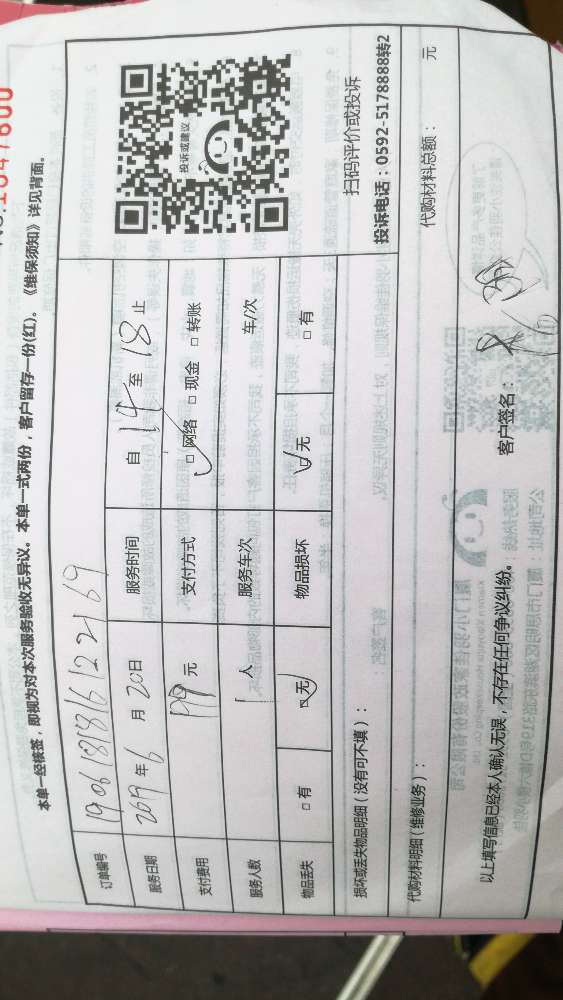 NO.1647600
本单一经核签，即视为对本次服务验收无异议。本单一式两份，客户留存一份(红)。《维保须知》详见背面。
订单编号 1906181816122169
服务日期 2019年6月20日 服务时间 自14至18止
支付费用 元 支付方式 □网络 □现金 □转账
服务人数 1人 服务车次 车/次
物品丢失 □有 □无 物品损坏 □无 □有
投诉或建议
损坏或丢失物品明细（没有可不填）：
扫码评价或投诉
投诉电话：0592-5178888转2
代购材料明细（维修业务）：
代购材料总额： 元
以上填写信息已经本人确认无误，不存在任何争议纠纷。 客户签名：